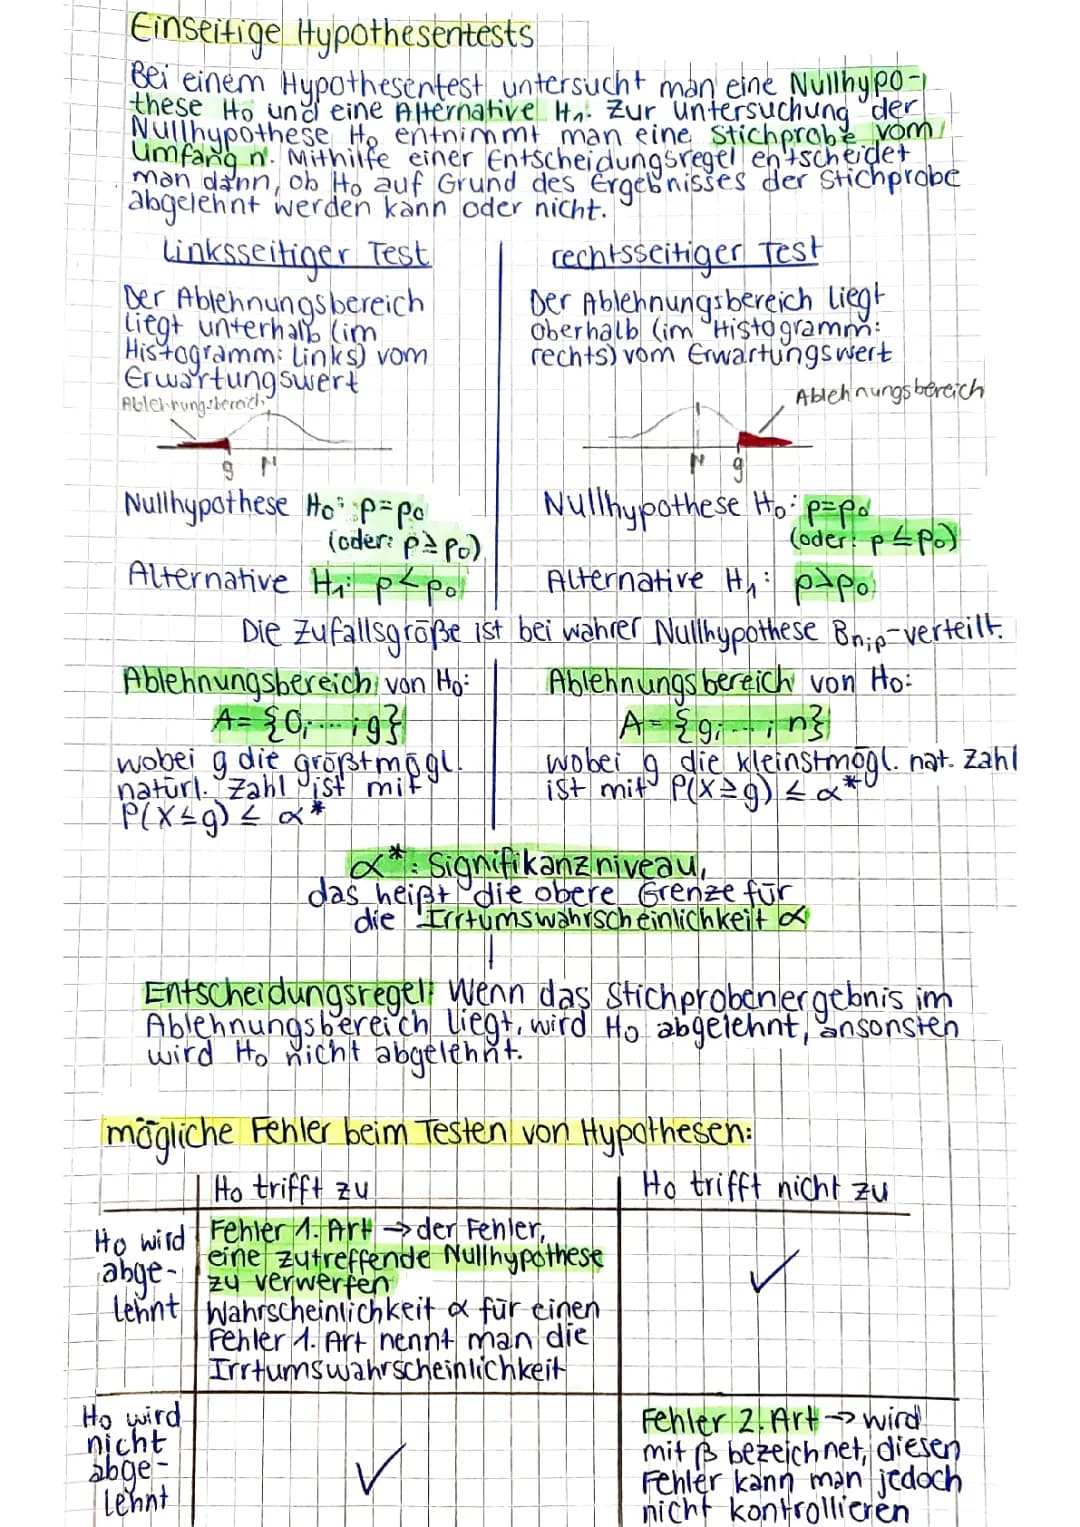 Einseitige Hypothesentests
Bei einem Hypothesentest untersucht man eine Nullhypo-
these H₀ und eine Alternative H₁. Zur Untersuchung der
Nullhypothese H₀ entnimmt man eine Stichprobe vom
Umfang n. Mithilfe einer Entscheidungsregel entscheidet
man dann, ob H₀ auf Grund des Ergebnisses der Stichprobe
abgelehnt werden kann oder nicht.
Linksseitiger Test
Der Ablehnungsbereich
liegt unterhalb (im
Histogramm: links) vom
Erwartungswert
Ablehnungsbereich
g μ
Nullhypothese H₀: p=p₀
(oder: p≥p₀)
Alternative H₁: p<p₀
rechtsseitiger Test
Der Ablehnungsbereich liegt
oberhalb (im Histogramm:
rechts) vom Erwartungswert
Ablehnungsbereich
μ g
Nullhypothese H₀: p=p₀
(oder: p≤p₀)
Alternative H₁: p>p₀
Die Zufallsgröße ist bei wahrer Nullhypothese Bn;p-verteilt.
Ablehnungsbereich von H₀:
A={0;...;g}
wobei g die größtmögl.
natürl. Zahl ist mit
P(X≤g) ≤ α*
Ablehnungsbereich von H₀:
A={g;...;n}
wobei g die kleinstmögl. nat. Zahl
ist mit P(X≥g) ≤ α*
α*: Signifikanzniveau,
das heißt die obere Grenze für
die Irrtumswahrscheinlichkeit α
Entscheidungsregel: Wenn das Stichprobenergebnis im
Ablehnungsbereich liegt, wird H₀ abgelehnt, ansonsten
wird H₀ nicht abgelehnt.
mögliche Fehler beim Testen von Hypothesen:
H₀ trifft zu
H₀ trifft nicht zu
H₀ wird
abge-
lehnt
Fehler 1. Art → der Fehler,
eine zutreffende Nullhypothese
zu verwerfen
Wahrscheinlichkeit α für einen
Fehler 1. Art nennt man die
Irrtumswahrscheinlichkeit
✓
H₀ wird
nicht
abge-
lehnt
✓
Fehler 2. Art → wird
mit β bezeichnet, diesen
Fehler kann man jedoch
nicht kontrollieren